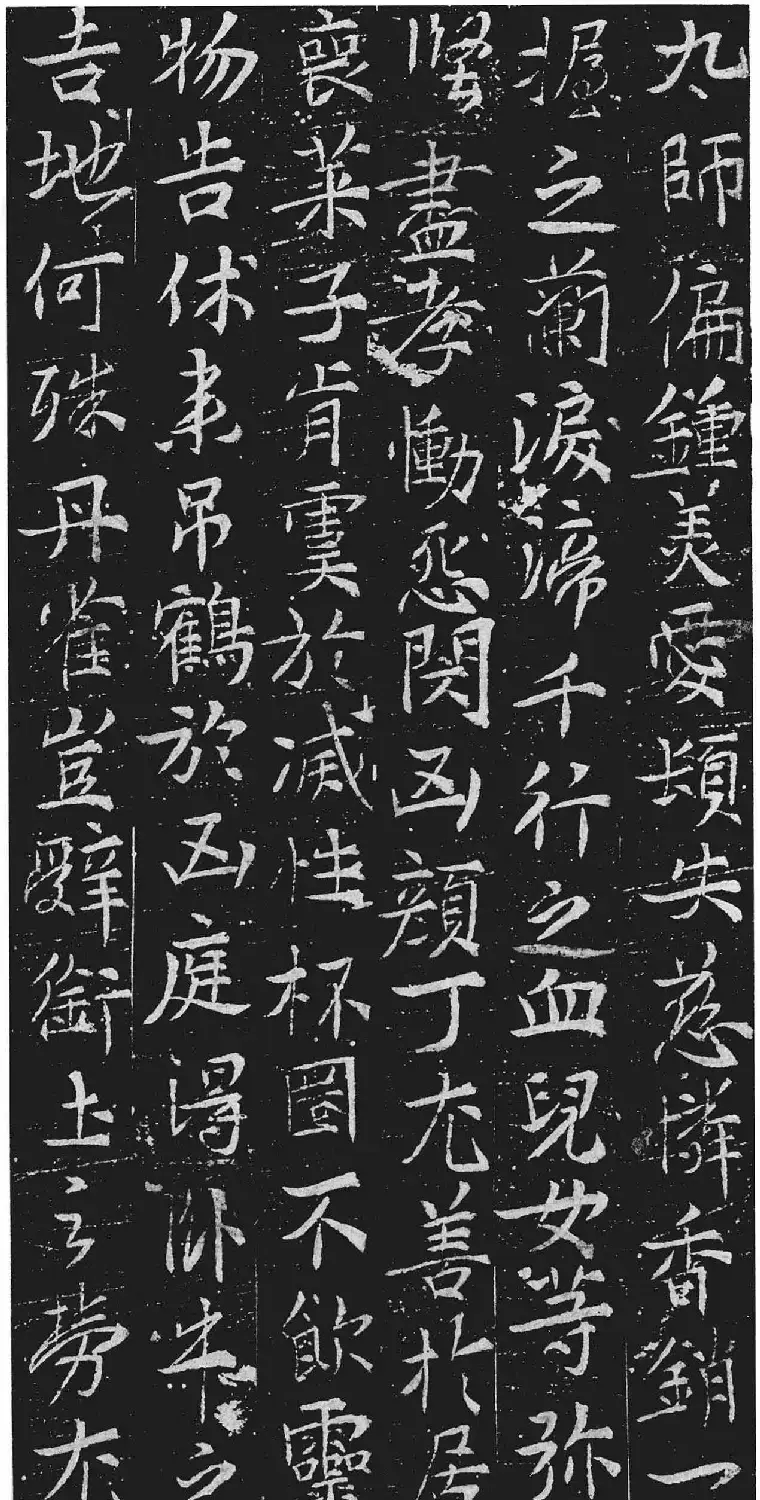 九師偏鍾美愛頓失慈憐香銷一
握之蘭淚滴千行之血兒女等弥
堅盡孝慟怨閔凶顏丁尤善於居
喪萊子肯虞於滅性杯圈不飲靈
物告休来吊鶴於凶庭得臥牛之
吉地何殊丹雀豈辭銜土之勞尤